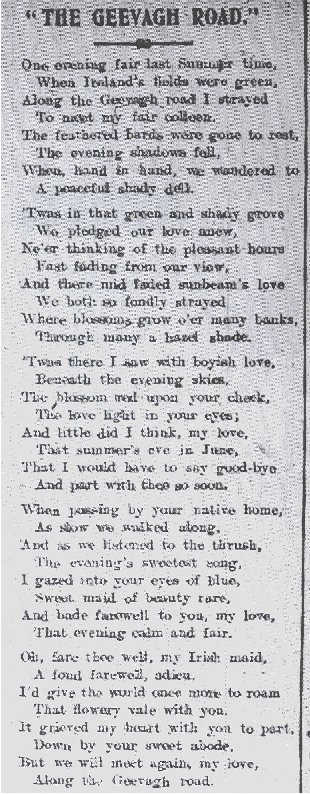 "THE GEEVAGH ROAD."
One evening fair last Summer time,
When Ireland's fields were green,
Along the Geevagh road I strayed
To meet my fair colleen.
The feathered bards were gone to rest,
The evening shadows fell,
When, hand in hand, we wandered to
A peaceful shady dell.
'Twas in that green and shady grove
We pledged our love anew,
Ne'er thinking of the pleasant hours
Fast fading from our view,
And there mid faded sunbeam's love
We both so fondly strayed
Where blossoms grow o'er many banks,
Through many a hazel shade.
'Twas there I saw with boyish love,
Beneath the evening skies,
The blossom red upon your cheek,
The love light in your eyes;
And little did I think, my love,
That summer's eve in June,
That I would have to say good-bye
And part with thee so soon.
When passing by your native home,
As slow we walked along,
And as we listened to the thrush,
The evening's sweetest song,
I gazed into your eyes of blue,
Sweet maid of beauty rare,
And bade farewell to you, my love,
That evening calm and fair.
Oh, fare thee well, my Irish maid,
A fond farewell, adieu,
I'd give the world once more to roam
That flowery vale with you.
It grieved my heart with you to part,
Down by your sweet abode,
But we will meet again, my love,
Along the Geevagh road.